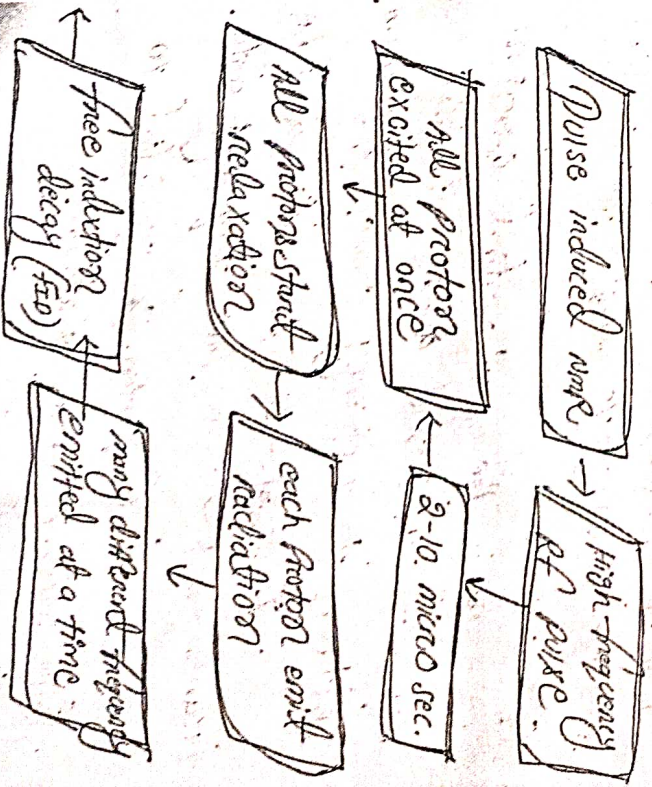 Pulse induced NMR
High-frequency
RF pulse.
2-10 micro sec.
All Proton
excited at once
All Protons start
relaxation
each Proton emit
radiation
many different frequency
emitted at a time
free induction
decay (FID)